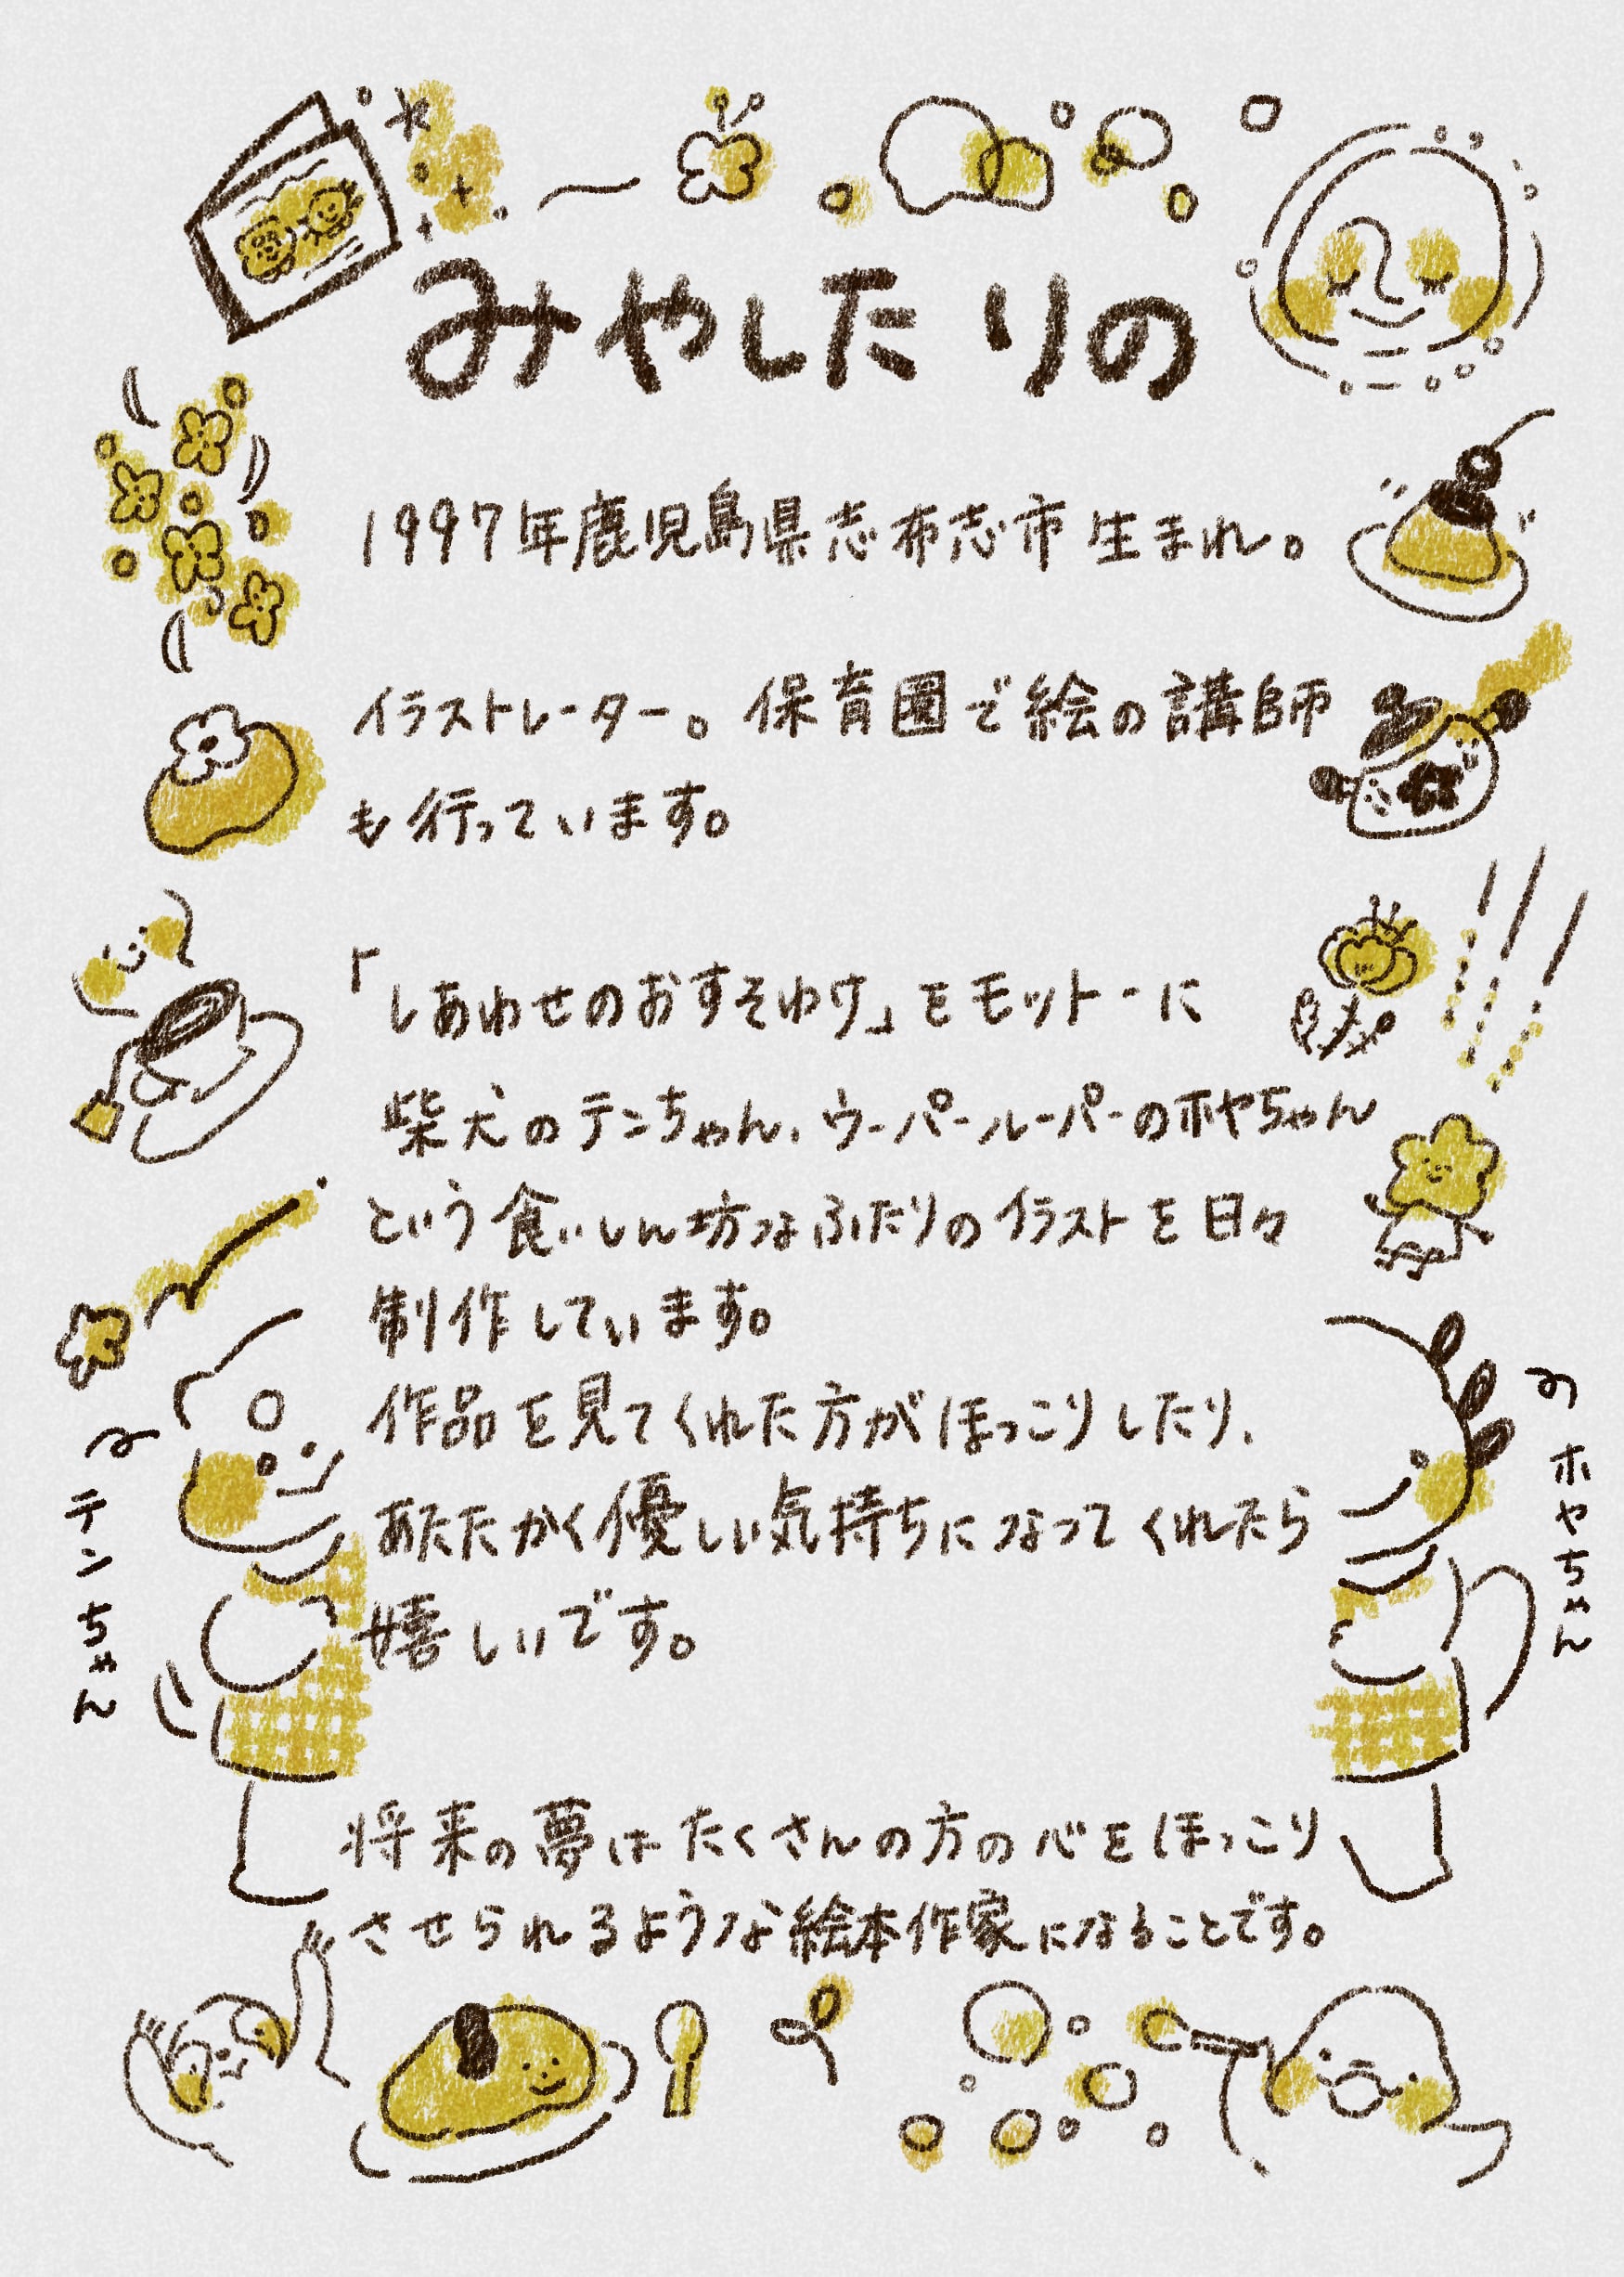 みやしたりの
1997年鹿児島県志布志市生まれ。
イラストレーター。保育園で絵の講師
も行っています。
「しあわせのおすそわけ」をモットーに
柴犬のテンちゃん、ウーパールーパーのホヤちゃん
という食いしん坊なふたりのイラストを日々
制作しています。
作品を見てくれた方がほっこりしたり、
あたたかく優しい気持ちになってくれたら
嬉しいです。
テンちゃん
ホヤちゃん
将来の夢はたくさんの方の心をほっこり
させられるような絵本作家になることです。